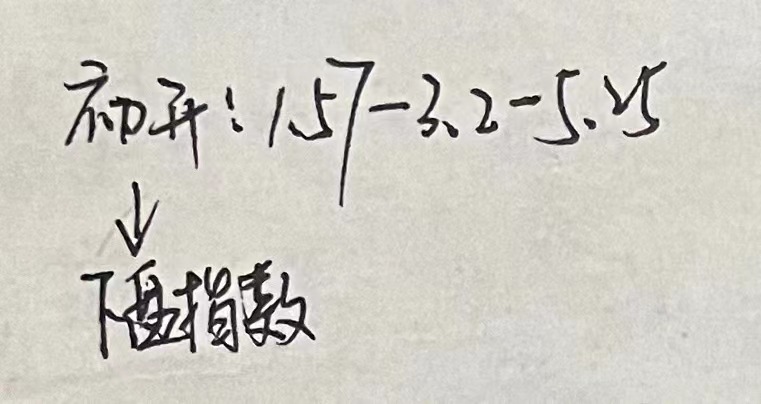 初开：1.57-3.2-5.25
↓
下盘指数